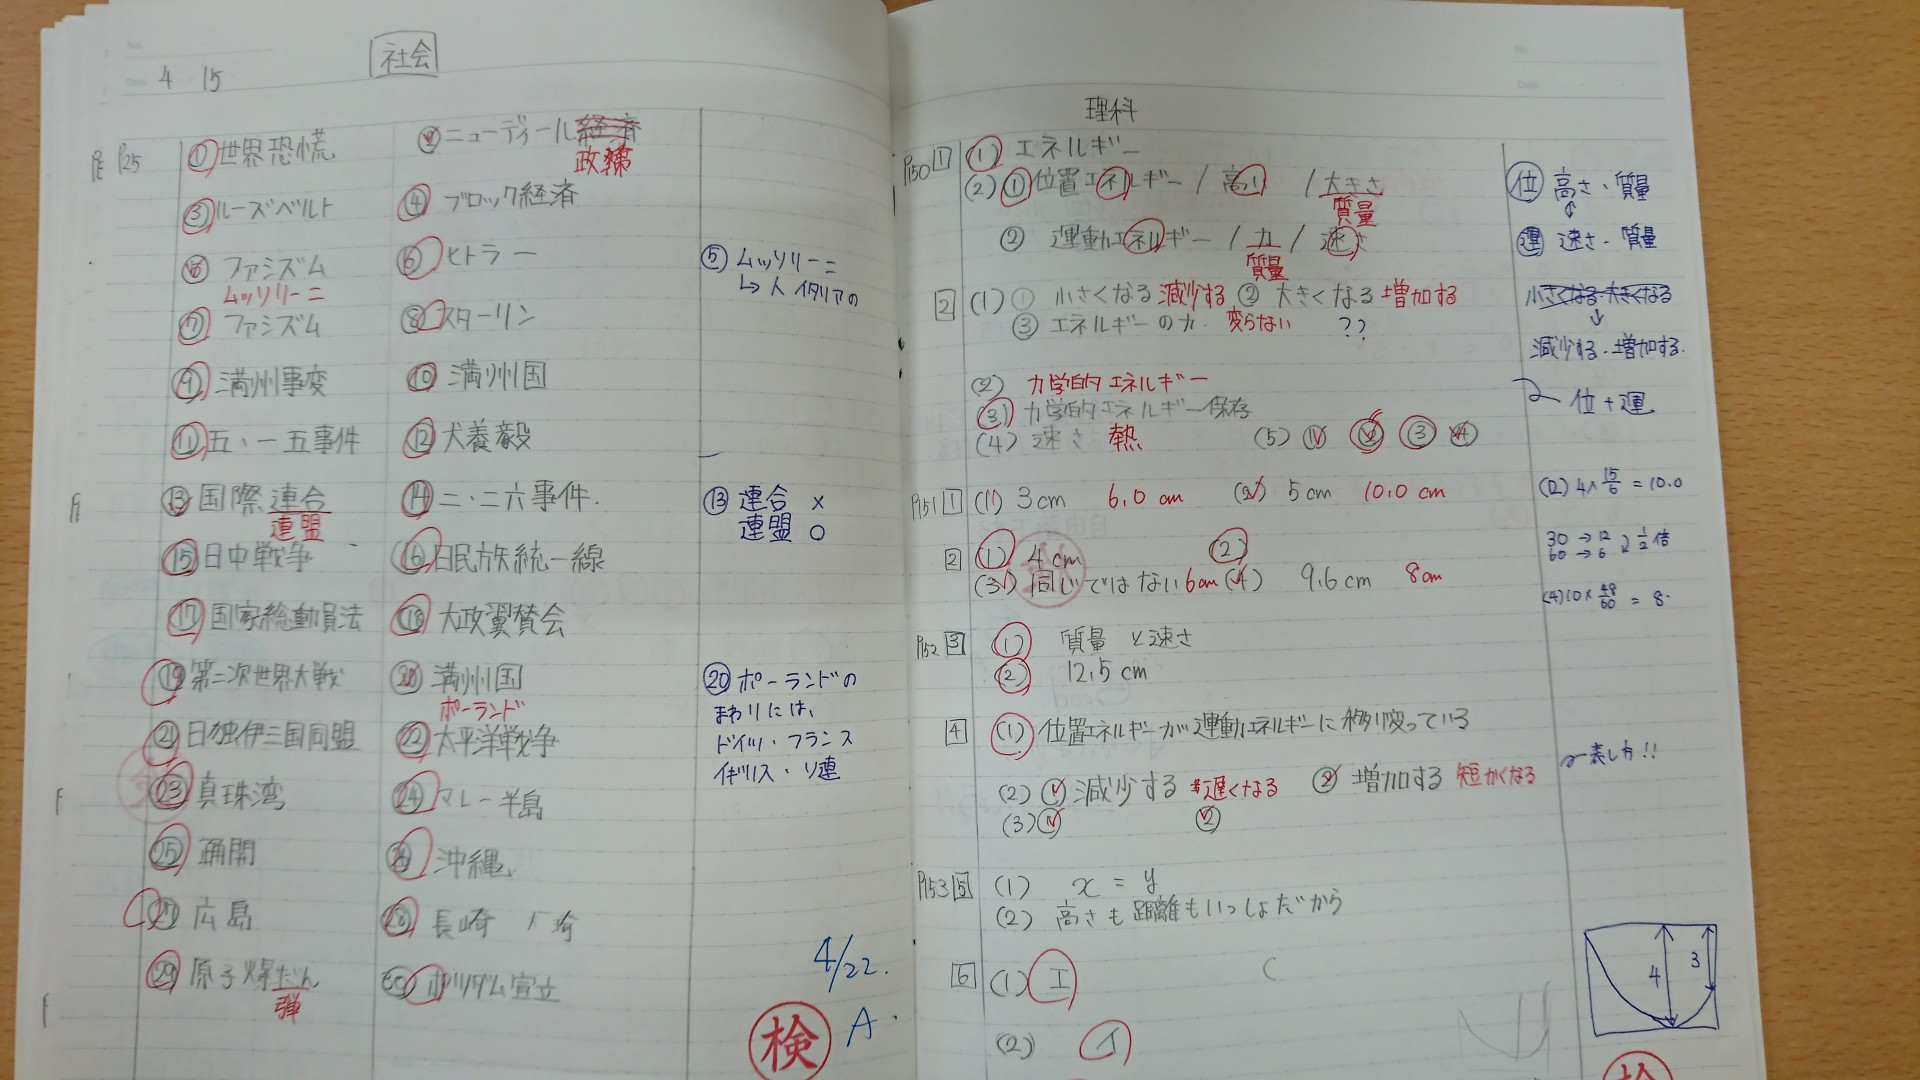 4 15
社会
P25 ① 世界恐慌 ② ニューディール経済
政策
③ ルーズベルト ④ ブロック経済
⑤ ファシズム ⑥ ヒトラー
ムッソリーニ
⑦ ファシズム ⑧ スターリン
⑨ 満州事変 ⑩ 満州国
⑪ 五・一五事件 ⑫ 犬養毅
⑬ 国際連合 ⑭ 二・二六事件.
連盟
⑮ 日中戦争 ⑯ 日民族統一線
⑰ 国家総動員法 ⑱ 大政翼賛会
⑲ 第二次世界大戦 ⑳ 満州国
ポーランド
㉑ 日独伊三国同盟 ㉒ 太平洋戦争
㉓ 真珠湾 ㉔ マレー半島
㉕ 疎開 ㉖ 沖縄
㉗ 広島 ㉘ 長崎 崎
㉙ 原子爆だん ㉚ ポツダム宣立
弾
⑤ ムッソリーニ
↳人 イタリアの
⑬ 連合 ×
連盟 ○
⑳ ポーランドの
まわりには、
ドイツ・フランス
イギリス・ソ連
4/22.
検 A.
理科
P150 1 (1) エネルギー
(2) ① 位置エネルギー / 高さ / 大きさ
質量
② 運動エネルギー / 力 / 速さ
質量
2 (1) ① 小さくなる 減少する ② 大きくなる 増加する
③ エネルギーの力. 変らない ??
(2) 力学的エネルギー
(3) 力学的エネルギー保存
(4) 速さ 熱 (5) ① ② ③ ④
P151 1 (1) 3cm 6.0cm (2) 5cm 10.0cm
2 (1) 4cm (2)
(3) 同じではない 6cm (4) 9.6cm 8cm
P152 3 (1) 質量と速さ
(2) 12.5cm
4 (1) 位置エネルギーが運動エネルギーに移り変っている
(2) ① 減少する 遅くなる ② 増加する 短かくなる
(3) ① ②
P153 5 (1) x = y
(2) 高さも距離もいっしょだから
6 (1) エ
(2) イ
位 高さ・質量
運 速さ・質量
小さくなる・大きくなる
↓
減少する・増加する.
位+運
(2) 4× 15/6 = 10.0
30 → 12
60 → 6 1/2倍
(4) 10× 48/60 = 8.
〜表し方!!
4 3
検